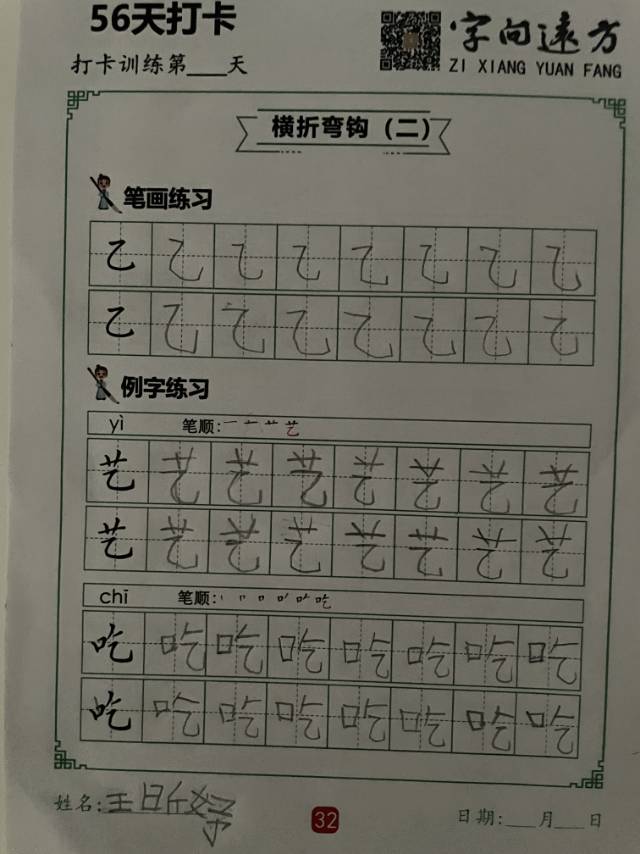 56天打卡
打卡训练第___天
字向远方
ZI XIANG YUAN FANG
横折弯钩（二）
笔画练习
乙 乙 乙 乙 乙 乙 乙 乙
乙 乙 乙 乙 乙 乙 乙 乙
例字练习
yì 笔顺: 一 十 艹 艺
艺 艺 艺 艺 艺 艺 艺 艺
艺 艺 艺 艺 艺 艺 艺 艺
chī 笔顺: 丨 𠃍 口 口' 口𠂉 吃
吃 吃 吃 吃 吃 吃 吃 吃
吃 吃 吃 吃 吃 吃 吃 吃
姓名: 王
32
日期:___月___日